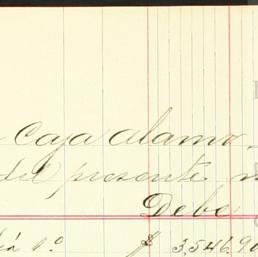 Caja Alamo.
del presente
Debe
1º $ 3,546.90